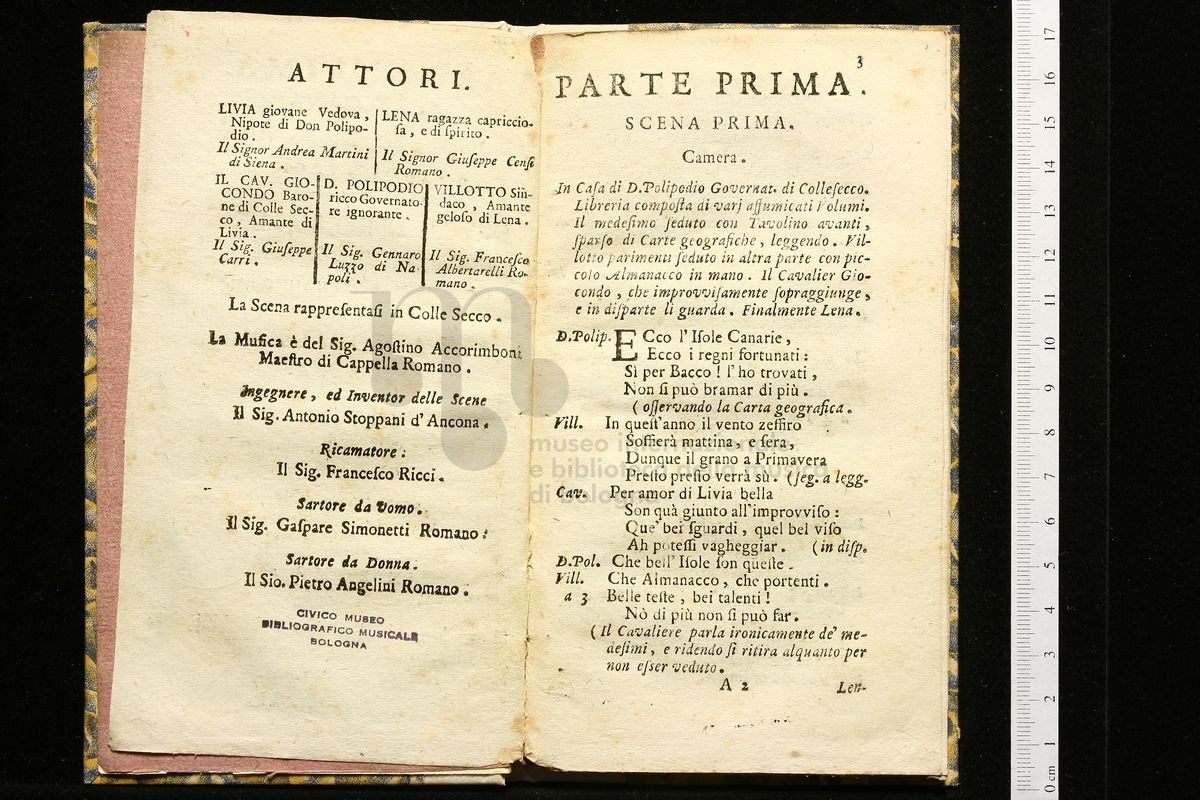 ATTORI.
LIVIA giovane Vedova,
Nipote di Don Polipo-
dio.
Il Signor Andrea Martini
di Siena.
LENA ragazza capriccio-
sa, e di spirito.
Il Signor Giuseppe Censi
Romano.
IL CAV. GIO-
CONDO Baro-
ne di Colle Sec-
co, Amante di
Livia.
Il Sig. Giuseppe
Carri.
D. POLIPODIO
ricco Governato-
re ignorante.
Il Sig. Gennaro
Luzzo di Na-
poli.
VILLOTTO Sin-
daco, Amante
geloso di Lena.
Il Sig. Francesco
Albertarelli Ro-
mano.
La Scena rappresentasi in Colle Secco.
La Musica è del Sig. Agostino Accorimboni
Maestro di Cappella Romano.
Ingegnere, ed Inventor delle Scene
Il Sig. Antonio Stoppani d'Ancona.
Ricamatore:
Il Sig. Francesco Ricci.
Sartore da Uomo.
Il Sig. Gaspare Simonetti Romano:
Sartore da Donna.
Il Sig. Pietro Angelini Romano.
CIVICO MUSEO
BIBLIOGRAFICO MUSICALE
BOLOGNA
3
PARTE PRIMA.
SCENA PRIMA.
Camera.
In Casa di D.Polipodio Governat. di Collesecco.
Libreria composta di varj affumicati Volumi.
Il medesimo seduto con Tavolino avanti,
sparso di Carte geografiche, leggendo. Vil-
lotto parimenti seduto in altra parte con pic-
colo Almanacco in mano. Il Cavalier Gio-
condo, che improvvisamente sopraggiunge,
e in disparte li guarda. Finalmente Lena.
D.Polip. ECco l'Isole Canarie,
Ecco i regni fortunati:
Sì per Bacco! l'ho trovati,
Non si può bramar di più.
(osservando la Carta geografica.
Vill. In quest'anno il vento zeffiro
Soffierà mattina, e sera,
Dunque il grano a Primavera
Presto presto verrà sù. (seg. a legg.
Cav. Per amor di Livia bella
Son quà giunto all'improvviso:
Que' bei sguardi, quel bel viso
Ah potessi vagheggiar. (in disp.
D.Pol. Che bell'Isole son queste.
Vill. Che Almanacco, che portenti.
a 3 Belle teste, bei talenti!
Nò di più non si può far.
(Il Cavaliere parla ironicamente de' me-
desimi, e ridendo si ritira alquanto per
non esser veduto.
A 2 Len-
museo internazionale
e biblioteca della musica
di bologna
0 cm 1 2 3 4 5 6 7 8 9 10 11 12 13 14 15 16 17